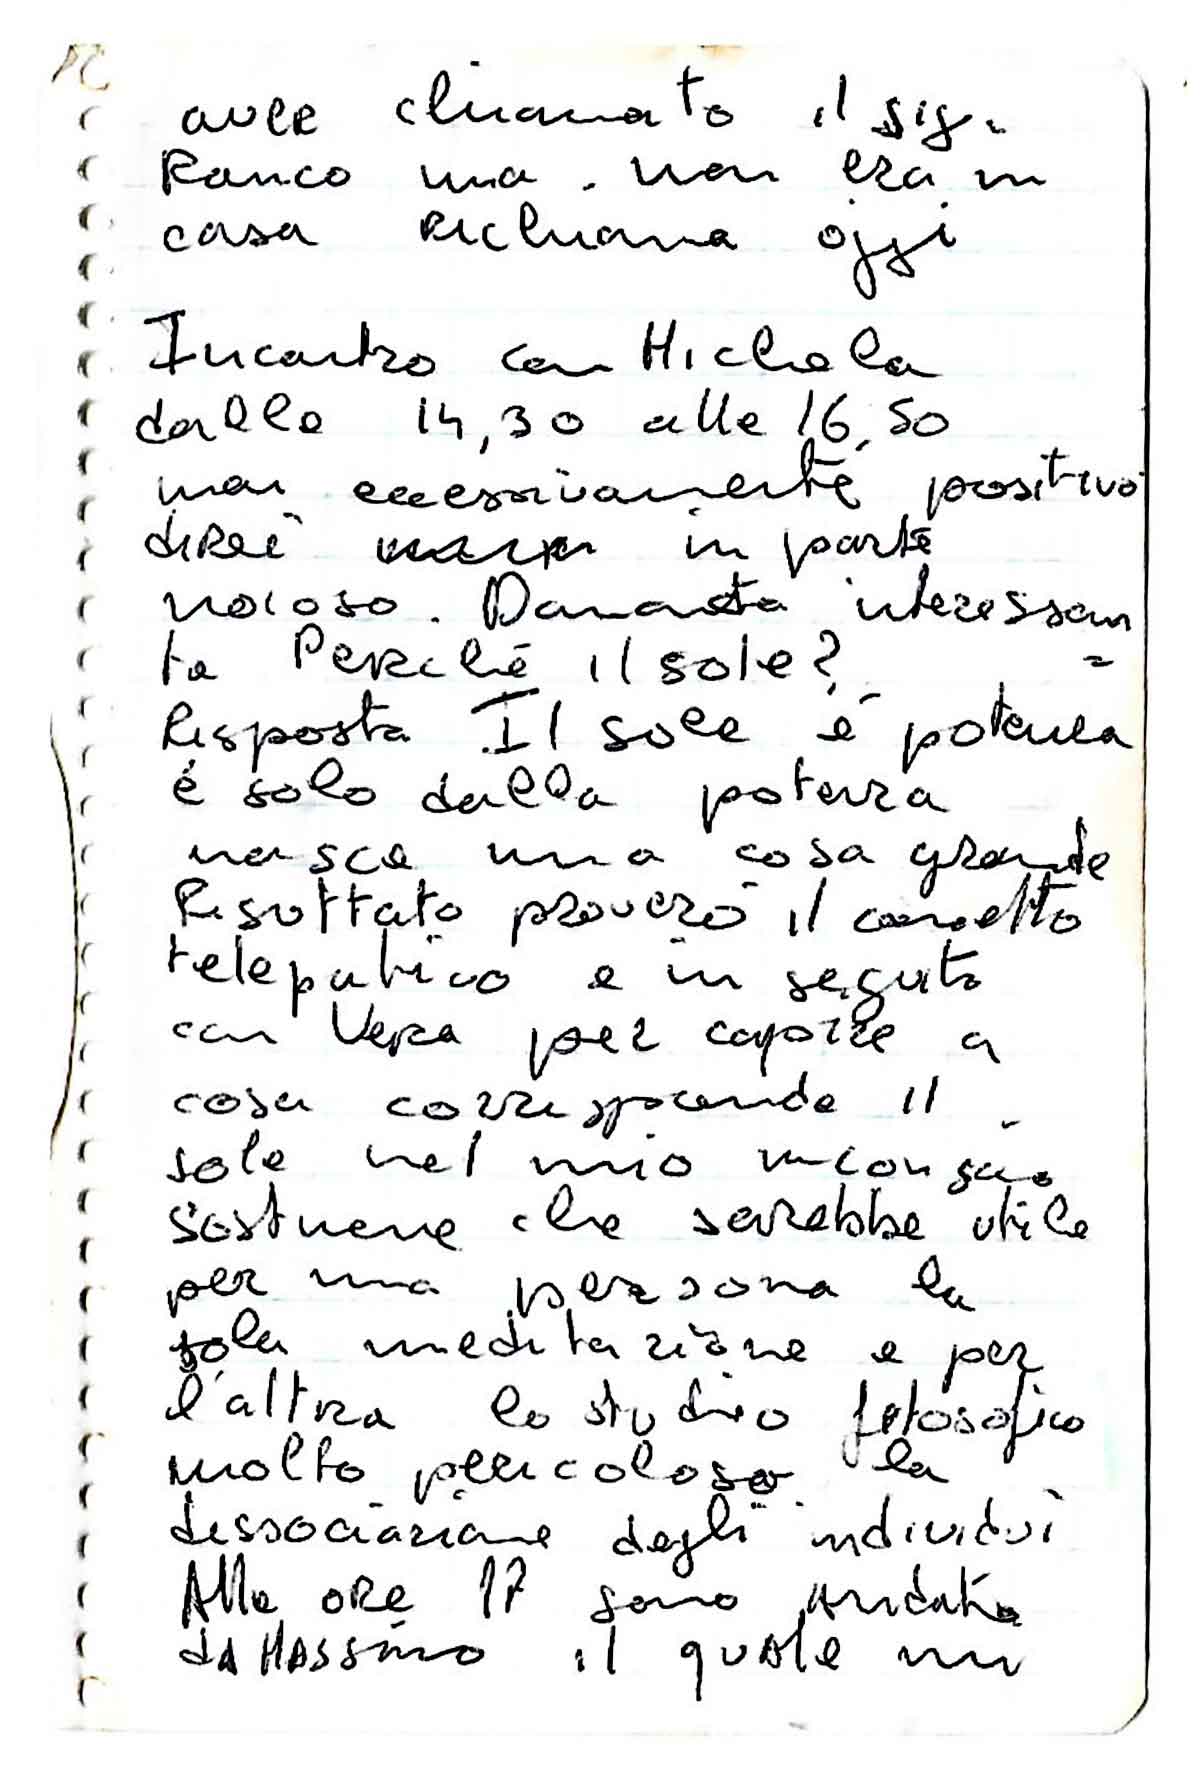 aver chiamato il sig.
Ranco ma. non era in
casa richiama oggi
Incontro con Michela
dalle 14,30 alle 16,50
non eccessivamente positivo
direi in parte
noioso. Domanda interessan
te Perché il sole? =
Risposta Il sole é potenza
é solo dalla potenza
nasce una cosa grande
Risultato proverò il contatto
telepatico e in seguito
con Vera per capire a
cosa corrisponde il
sole nel mio inconscio
sostiene che sarebbe utile
per una persona la
sola meditazione e per
l'altra lo studio filosofico
molto pericolosa la
dissociazione degli individui
Alle ore 17 sono andata
da Massimo il quale mi